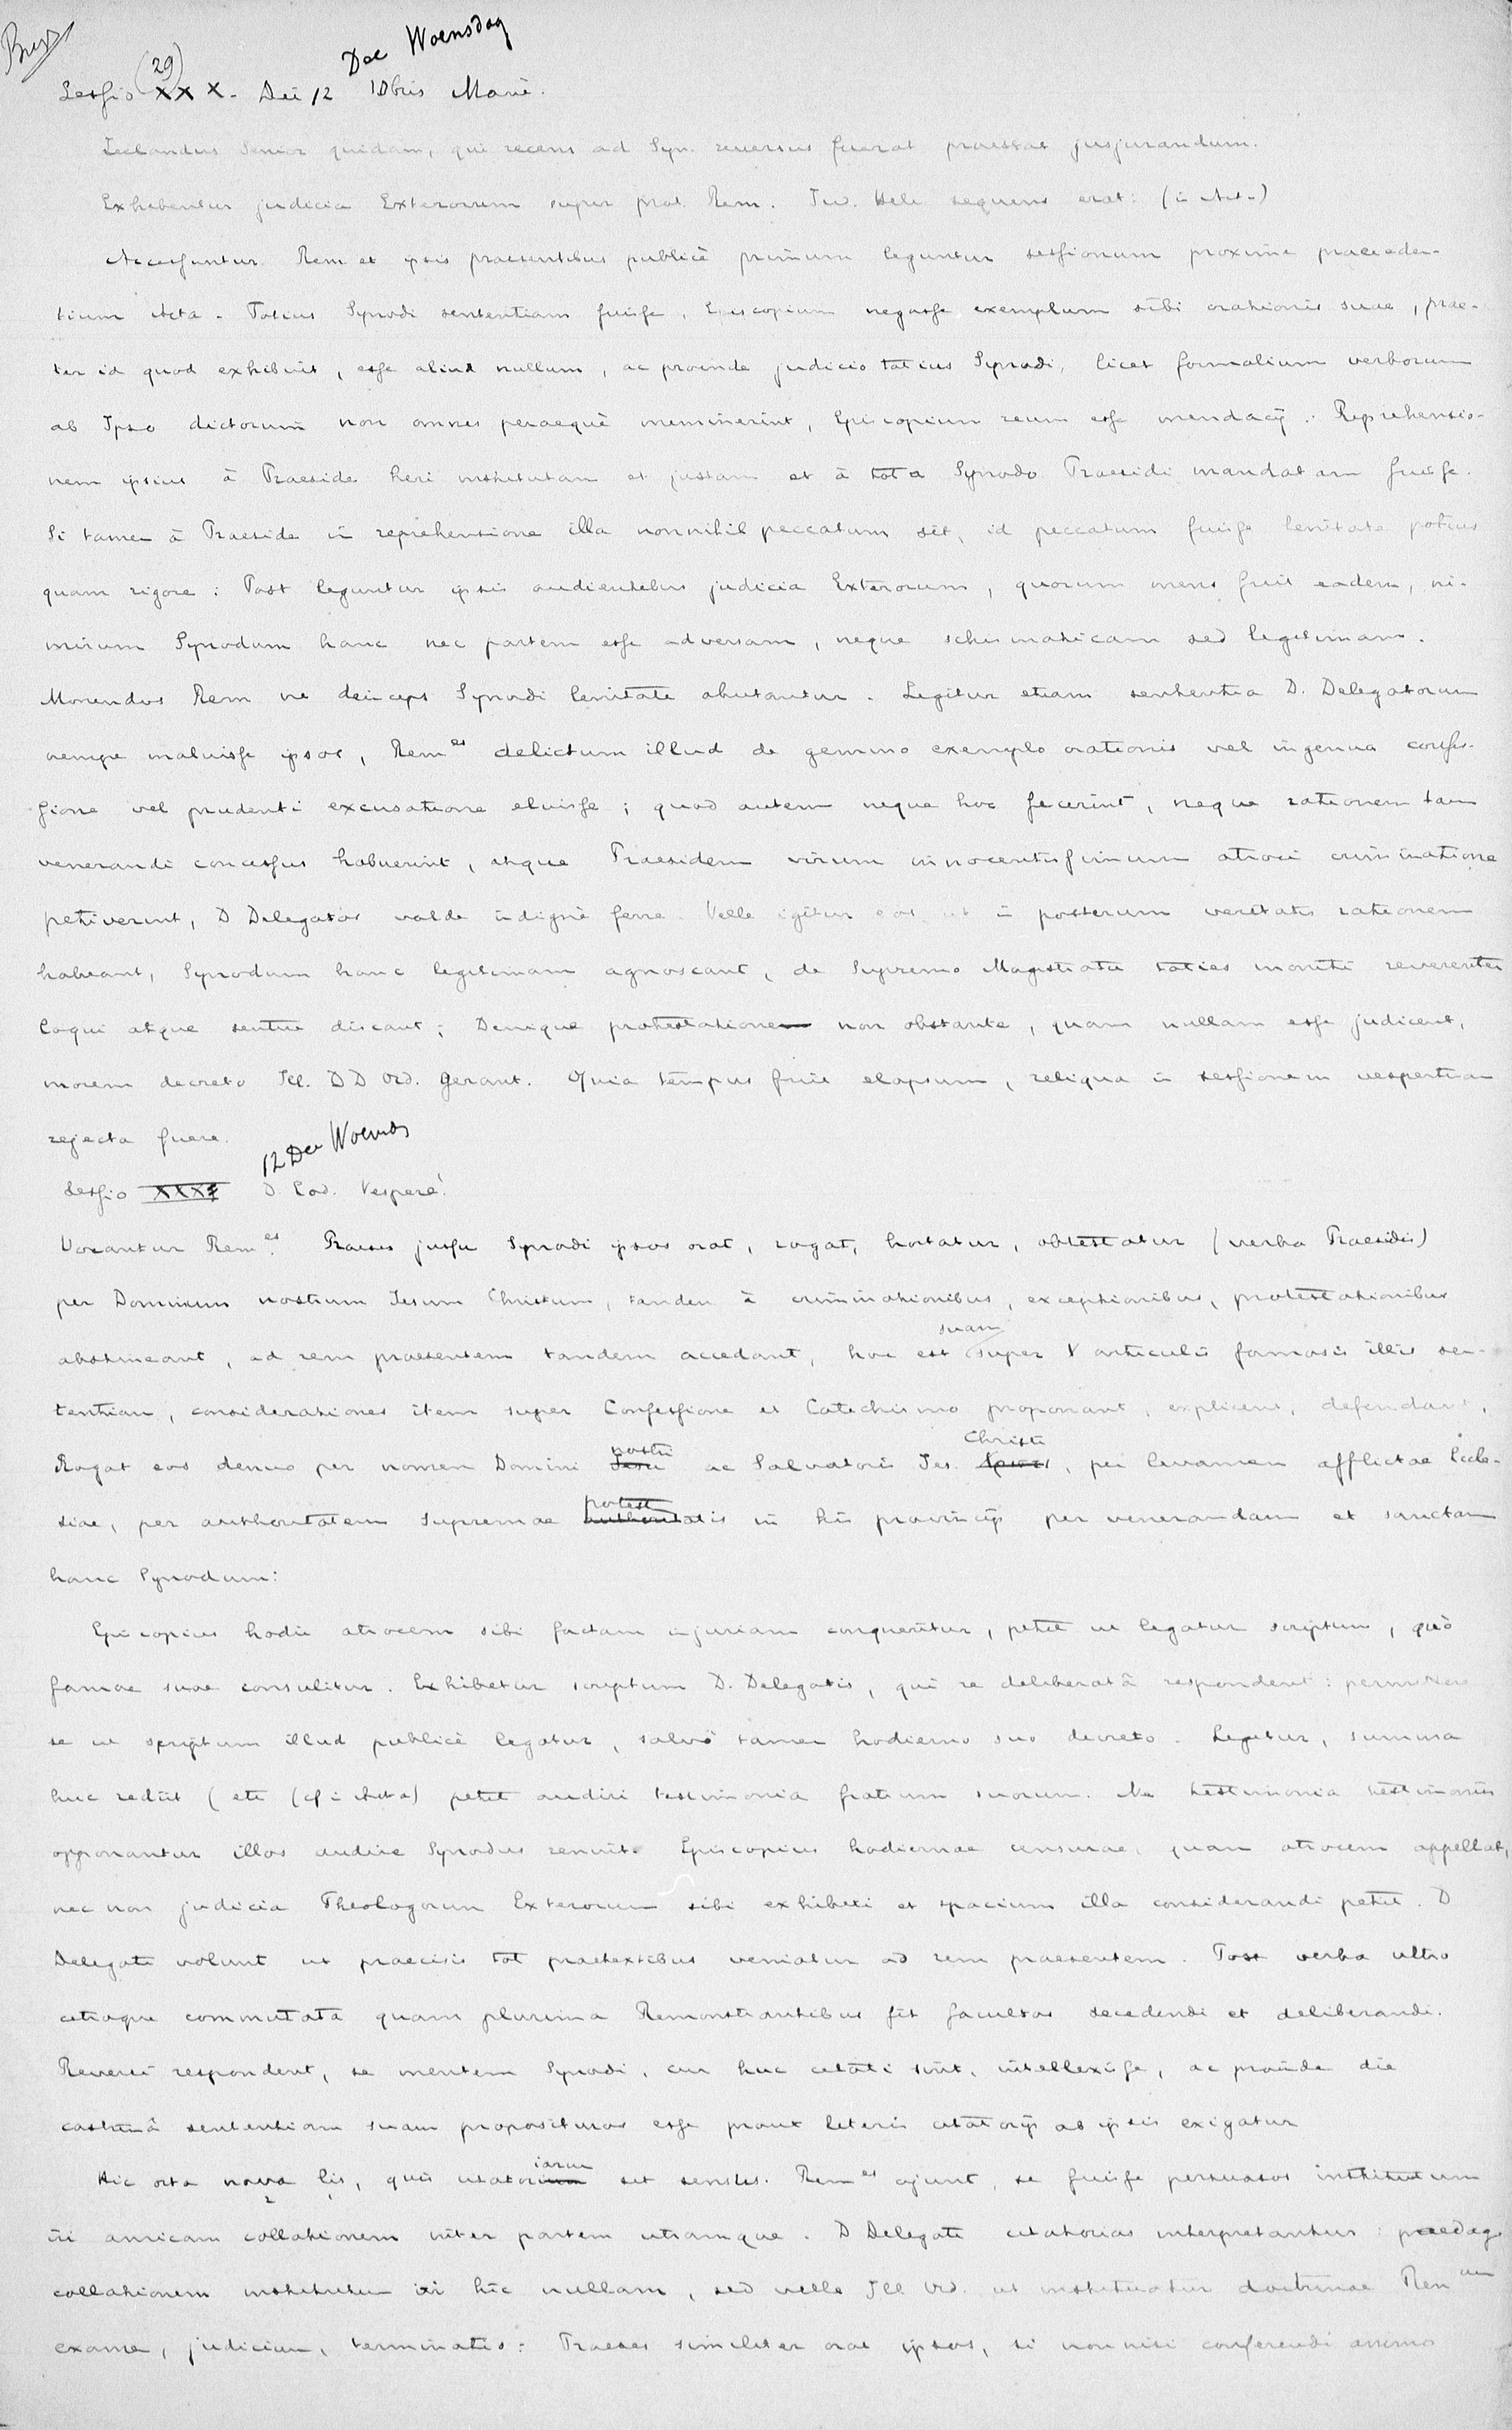 Dec Woensdag
(29)
Sessio XXX. Die 12 10bris Mane.
Zeelandus Senior quidam, qui recens ad Syn. reversus fuerat praestat jusjurandum.
Exhibentur judicia Exterorum super prot. Rem. Jud. Helv. sequens erat: (in Act.)
Accersuntur Rem. et ipsis praesentibus publicè primum leguntur sessionum proxime praeceden-
tium Acta. Totius Synodi sententiam fuisse, Episcopium negasse exemplum sibi orationis suae, prae-
ter id quod exhibuit, esse aliud nullum, ac proinde judicio totius Synodi, licet formalium verborum
ab Ipso dictorum non omnes peraequè meminerint, Episcopium reum esse mendacij. Reprehensio-
nem ipsius à Praeside heri institutam et justam et à tota Synodo Praesidi mandatam fuisse.
Si tamen à Praeside in reprehensione illa nonnihil peccatum sit, id peccatum fuisse lenitate potius
quam rigore: Post leguntur ipsis audientibus judicia Exterorum, quorum mens fuit eadem, ni-
mirum Synodum hanc nec partem esse adversam, neque schismaticam sed legitimam.
Monendos Rem ne deinceps Synodi lenitate abutantur. Legitur etiam sententia D. Delegatorum
nempe maluisse ipsos, Rem.es delictum illud de gemino exemplo orationis vel ingenua confes-
sione vel prudenti excusatione eluisse; quod autem neque hoc fecerint, neque rationem tam
venerandi concessus habuerint, atque Praesidem virum innocentissimum atroci criminatione
petiverint, D Delegatos valde indignè ferre. Velle igitur eos ut in posterum veritatis rationem
habeant, Synodum hanc legitimam agnoscant, de Supremo Magistratu toties moniti reverenter
loqui atque sentire discant; Denique protestatione non obstante, quam nullam esse judicent,
morem decreto Ill. DD Ord. gerant. Quia tempus fuit elapsum, reliqua in sessionem vespertinam
rejecta fuere.
12 Dec Woensd
Sessio XXXI D. Eod. Vesperè.
Vocantur Rem.es Praeses jussu Synodi ipsos orat, rogat, hortatur, obtestatur (verba Praesidis)
per Dominum nostrum Jesum Christum, tandem à criminationibus, exceptionibus, protestationibus
abstineant, ad rem praesentem tandem accedant, hoc est suam super V articulis famosis illis sen-
tentiam, considerationes item super Confessione et Catechismo proponant, explicent, defendant,
Rogat eos denuo per nomen Domini nostri ac Salvatoris Jes. Christi, per levamen afflictae Eccle-
siae, per authoritatem supremae potestatis in his provincijs per venerandam et sanctam
hanc Synodum:
Episcopius hodie atrocem sibi factam injuriam conqueritur, petit ut legatur scriptum, quò
famae suae consulitur. Exhibetur scriptum D. Delegatis, qui re deliberatâ respondent: permittere
se ut scriptum illud publicè legatur, salvo tamen hodierno suo decreto. Legitur, summa
huc rediit (etc (cf in Acta) petit audiri testimonia fratrum suorum. Ne testimonia testimoniis
opponantur illos audire Synodus renuit. Episcopius hodiernae censurae, quam atrocem appellat,
nec non judicia Theologorum Exterorum sibi exhiberi et spacium illa considerandi petit. D
Delegati volunt ut praecisis tot praetextibus veniatur ad rem praesentem. Post verba ultro
citroque commutata quam plurima Remonstrantibus fit facultas secedendi et deliberandi.
Reversi respondent, se mentem Synodi, cur huc citati sint, intellexisse, ac proinde die
crastinâ sententiam suam proposituros esse prout literis citatorijs ab ipsis exigatur
Hic orta nova lis, quis citatoriarum sit sensus. Rem.es ajunt, se fuisse persuasos institutum
iri amicam collationem inter partem utramque. D Delegati citatorias interpretantur:
collationem institutum iri hic nullam, sed velle Ill Ord. ut instituatur doctrinae Rem.um
examen, judicium, terminatio: Praeses similiter orat ipsos, si non nisi conferendi animo